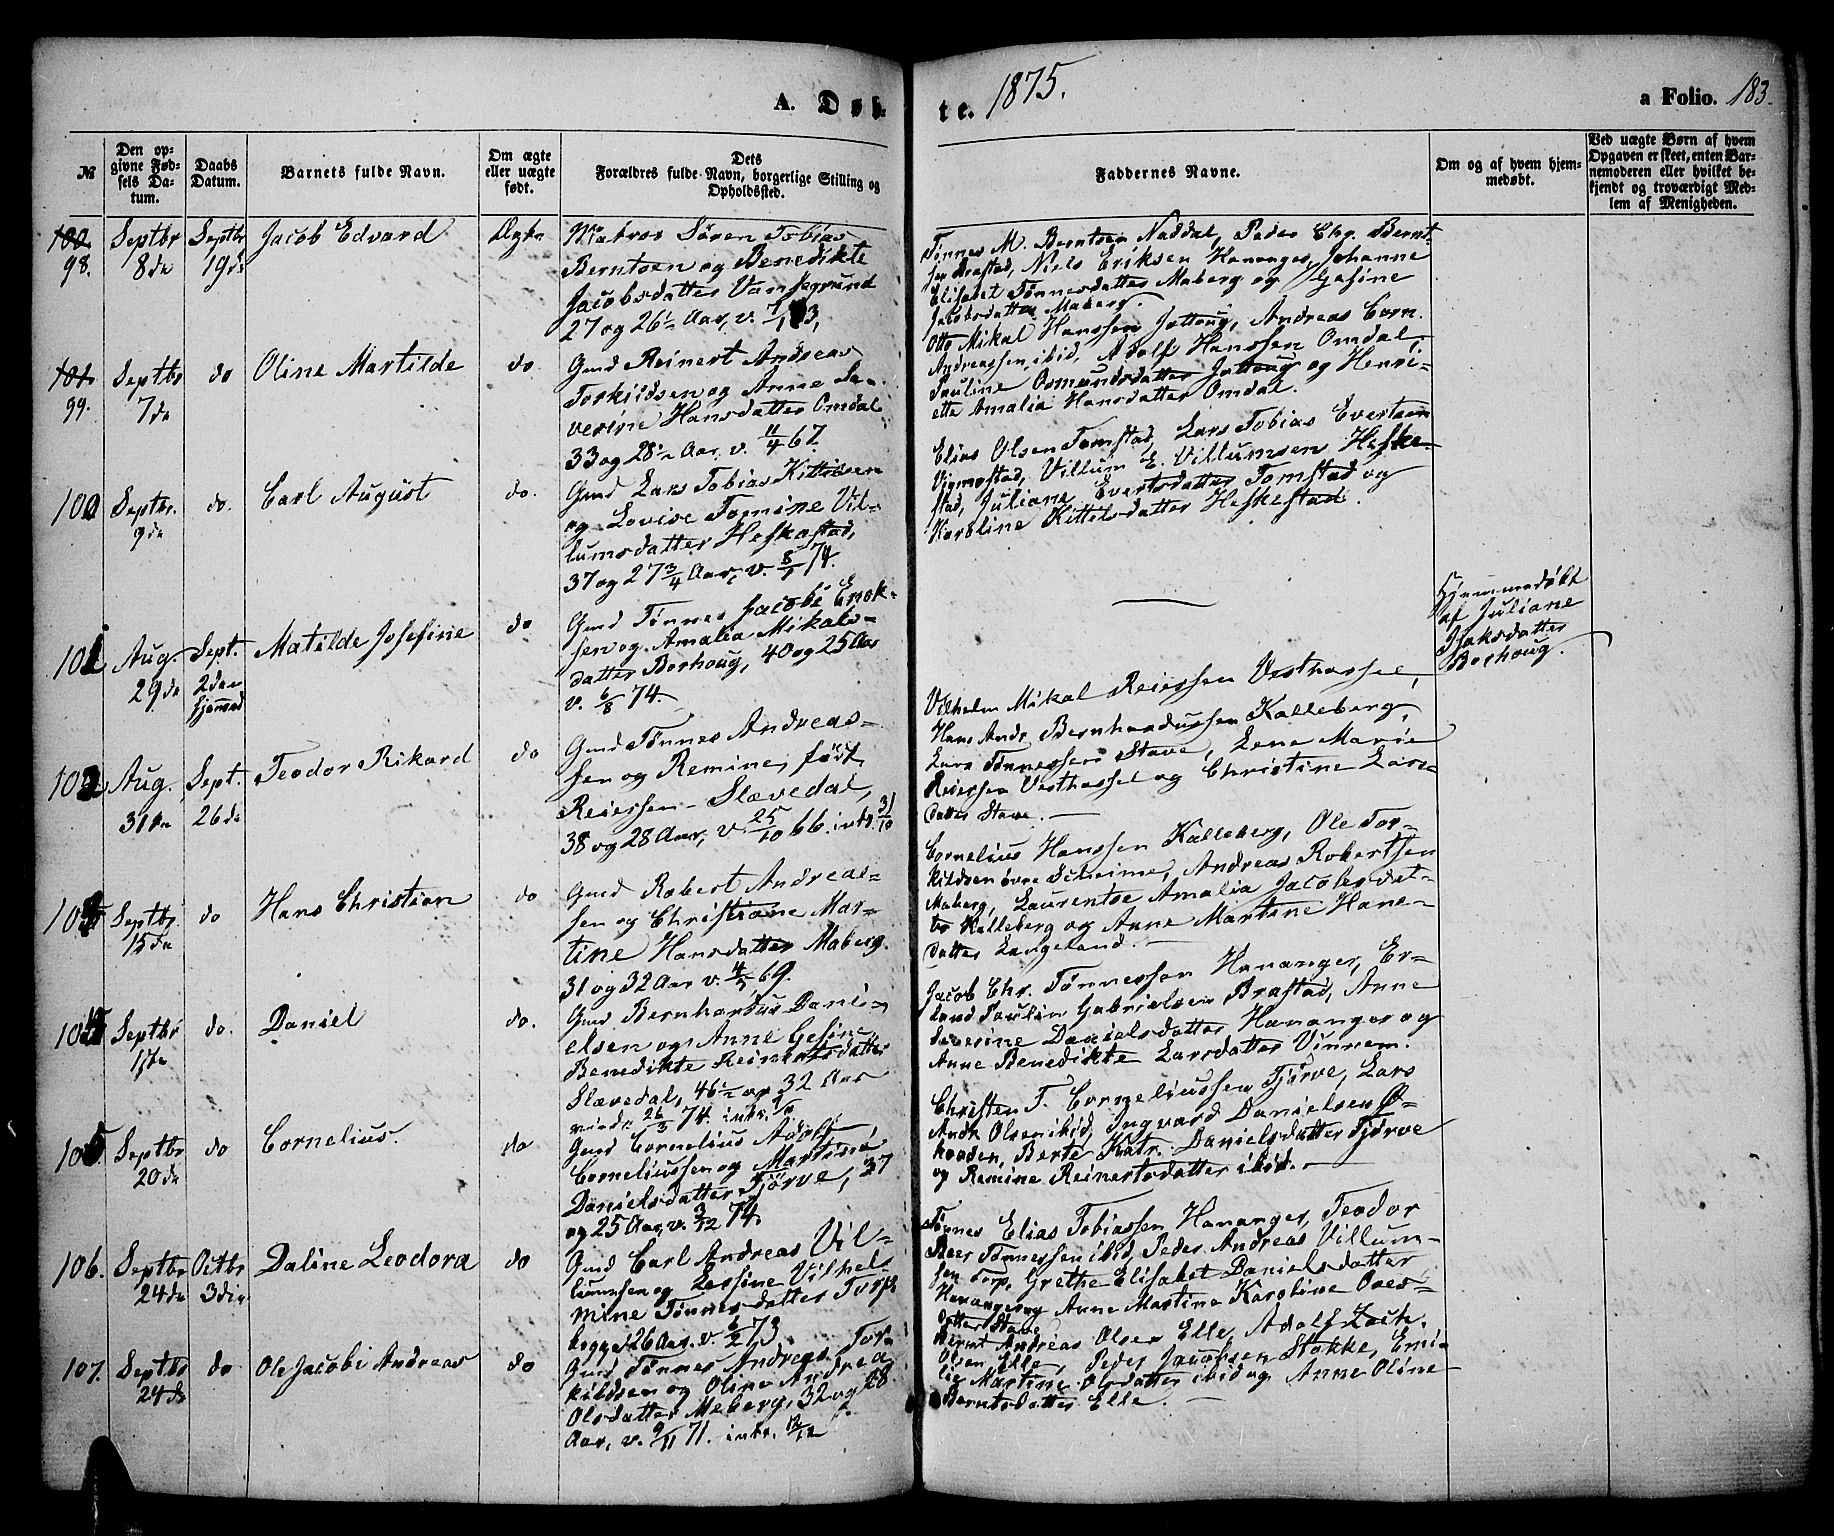 A. Døb-
te. 1875.
a Folio. 183.
№
Den op-
givne Fød-
sels Da-
tum.
Daabs
Datum.
Barnets fulde Navn.
Om ægte
eller uægte
født.
Dets
Forældres fulde Navn, borgerlige Stilling og
Opholdssted.
Faddernes Navne.
Om og af hvem hjem-
medøbt.
Ved uægte Børn af hvem
Opgaven er skeet, enten Bar-
nemoderen eller hvilket be-
kjendt og troværdigt Med-
lem af Menigheden.
100
98.
Septbr
8de
Septbr
19de
Jacob Edvard
Ægte
Matros Sören Tobias
Berntsen og Benedikte
Jacobsdatter Vansegrund
27 og 26½ Aar, v.
Tönnes M. Berntsen Naddal, Peder Chr. Bernt-
sen Brastad, Niels Eriksen Hananger, Johanne
Elisabet Tönnesdatter Maberg og Gesine
Jacobsdatter Maberg.
101
99.
Septbr
7de
do
Oline Martilde
do
Gmd Reinert Andreas
Torkildsen og Anne Se-
verine Hansdatter Omdal
33 og 28½ Aar, v. 11/4 67.
Otto Mikal Hanssen Jøttoug, Andreas Corn.
Andreassen, ibid, Adolf Hanssen Omdal,
Pauline Osmundsdatter Jøttoug og Henri-
ette Amalia Hansdatter Omdal.
100
Septbr.
9de
do.
Carl August
do.
Gmd Lars Tobias Kittilsen
og Lovise Tomine Vil-
lumsdatter Heskestad,
37 og 27 3/4 Aar, v. 8/1 74.
Elias Olsen Tomstad, Lars Tobias Evertsen
Vigmostad, Villum E. Villumsen Heske-
stad, Juliane Evertsdatter Tomstad og
Karoline Kittelsdatter Heskestad.
101
Aug.
29de
Sept.
2den
hjemmed
Matilde Josefine
do
Gmd Tönnes Jacobi Enok-
sen og Amalia Mikals-
datter Borhoug, 40 og 25 Aar
v. 6/8 74.
Hjemmedøbt
af Juliane
Isaksdatter
Borhoug.
102
Aug.
31te
Sept.
26de
Teodor Rikard
do
Gmd Tönnes Andreas-
sen og Remine, født
Reiersen - Slævedal,
38 og 28 Aar, v. 25/10 66. intr. 31/10
Vilhelm Mikal Reierssen Vesthassel,
Hans Andr. Bernhardussen Kalleberg,
Lars Tönnessen Stave, Lene Marie
Reiersen Vesthassel og Christine Lars-
datter Stave.
103
Septbr.
15de
do
Hans Christian
do
Gmd Robert Andreas-
sen og Christiane Mar-
tine Hansdatter Maberg.
31 og 32 Aar v. 4/5 69.
Cornelius Hanssen Kalleberg, Ole Tor-
kildsen övre Skeime, Andreas Robertsen
Maberg, Laurentse Amalia Jacobsdat-
ter Kalleberg og Anne Martine Hans-
datter Langeland.
104
Septbr
do.
Daniel
do.
Gmd Bernhardus Dani-
elsen og Anne Gesine
Benedikte Reinertsdatter
Slævedal, 46½ og 32 Aar
viede 26/3 74. intr.
Jacob Chr. Tönnessen Hananger, Er-
land Paulin Gabrielsen Brastad, Anne
Severine Danielsdatter Hananger og
Anne Benedikte Larsdatter Vinnem.
105.
Septbr
20de
do
Cornelius.
do
Gmd Cornelius Adolf
Corneliussen og Martine
Danielsdatter Tjörve, 37
og 25 Aar, v. 3/12 74.
Christen T. Corneliussen Tjörve, Lars
Andr. Olsen ibid, Ingvard Danielsen Ø-
kvaden, Berte Katr. Danielsdatter Tjörve
og Remine Reinertsdatter ibid.
106.
Septbr
24de
Octbr
3die
Daline Leodora
do
Gmd Carl Andreas Vil-
lumsen og Lessine Vilhel-
mine Tönnesdatter Torp
begge 26 Aar. v. 6/2 73.
Tönnes Elias Tobiassen Hananger, Teodor
Peer Tönnessen ibid, Peder Andreas Villum-
sen Torp, Grethe Elisabet Danielsdatter
Hananger og Anne Martine Karoline Oves-
datter Stave
107.
Septbr
24de
do
Ole Jacobi Andreas
do
Gmd Tönnes Andreas Tor-
kildsen og Oline Andrea
Olsdatter Meberg, 32 og 28
Aar, v. 9/11 71. intr. 12/12
Bernt Andreas Olsen Elle, Adolf Zach.
Olsen Elle, Peder Jacobsen Stokke, Emi-
lie Martine Olsdatter ibid og Anne Oline
Berntsdatter Elle.